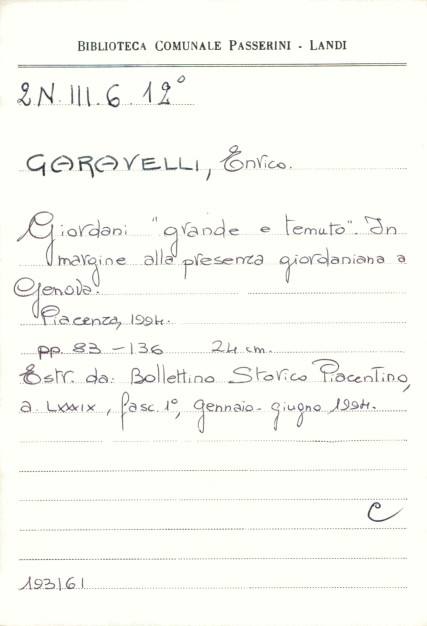 BIBLIOTECA COMUNALE PASSERINI - LANDI
2N.III.6.12°
GARAVELLI, Enrico.
Giordani "grande e temuto". In
margine alla presenza giordaniana a
Genova.
Piacenza, 1994.
pp. 83-136 24 cm.
Estr. da: Bollettino Storico Piacentino,
a. LXXXIX, fasc. 1°, gennaio-giugno 1994.
C
193161